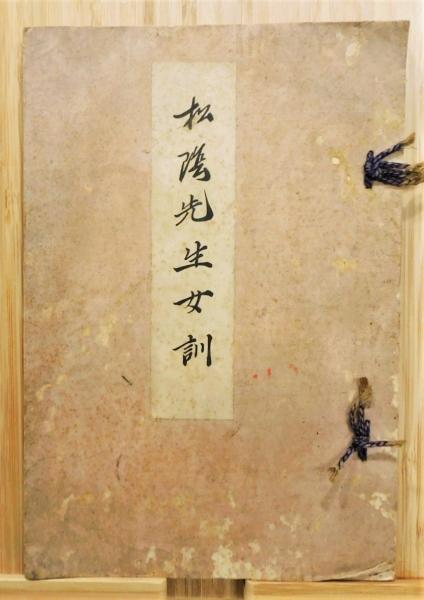 松陰先生女訓